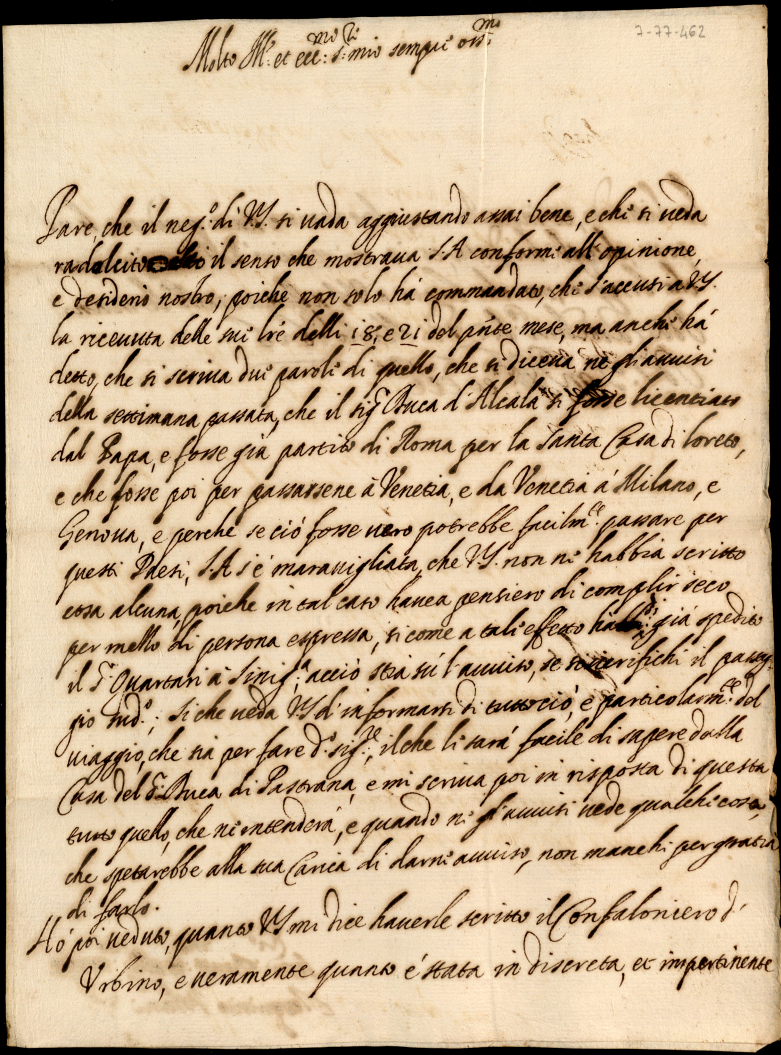 7-77-462
Molto Ill.e et ecc.mo S.r mio sempre oss.mo
Pare, che il neg.o di V.S. si vada aggiustando assai bene, e che si veda
radolcito il senso che mostraua S.A conforme all'opinione,
e desiderio nostro, poiche non solo hà commandato, che s'accusi a V.S.
la riceuuta delle sue lre delli 18, e 21 del pnte mese, ma anche hà
detto, che si scriua due parole di quello, che si diceua ne gli auuisi
della settimana passata, che il sig.r Duca d'Alcalà si fosse licentiato
dal Papa, e fosse già partito di Roma per la Santa Casa di Loreto,
e che fosse poi per passarsene à Venetia, e da Venetia à Milano, e
Genoua, e perche se ciò fosse uero potrebbe facilm.te passare per
questi Paesi, S.A s'è marauigliata, che V.S. non ne habbia scritto
cosa alcuna, poiche in tal caso hauea pensiero di complir seco
per mezzo di persona espressa, si come a tale effetto già spedito
il S.r Quartari à Sinig.a acciò stia sù l'auuiso, se si uerifichi il passag-
gio sud.o; si che ueda V.S d'informarsi di tutto ciò, e particolarm.te del
uiaggio, che sia per fare d.o sig.re, il che li sarà facile di sapere dalla
Casa del S.r Duca di Pastrana, e mi scriua poi in risposta di questa
tutto quello, che ne intenderà, e quando ne gl'auuisi uede qualche cosa,
che spetarebbe alla sua Carica di darne auuiso, non manchi per gratia
di farlo.
Hò poi ueduto, quanto V.S mi dice hauerle scritto il Confaloniero d'
Vrbino, e ueramente quanto è stata indiscreta, et impertinente